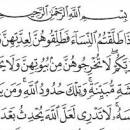 بِسْمِ ٱللَّهِ ٱلرَّحْمَٰنِ ٱلرَّحِيمِ
ذَا طَلَّقْتُمُ ٱلنِّسَآءَ فَطَلِّقُوهُنَّ لِعِدَّتِهِنَّ
رَبَّكُمْ لَا تُخْرِجُوهُنَّ مِنۢ بُيُوتِهِنَّ وَلَا
مُّبَيِّنَةٍ وَتِلْكَ حُدُودُ ٱللَّهِ وَمَن
لَا تَدْرِى لَعَلَّ ٱللَّهَ يُحْدِثُ بَعْدَ